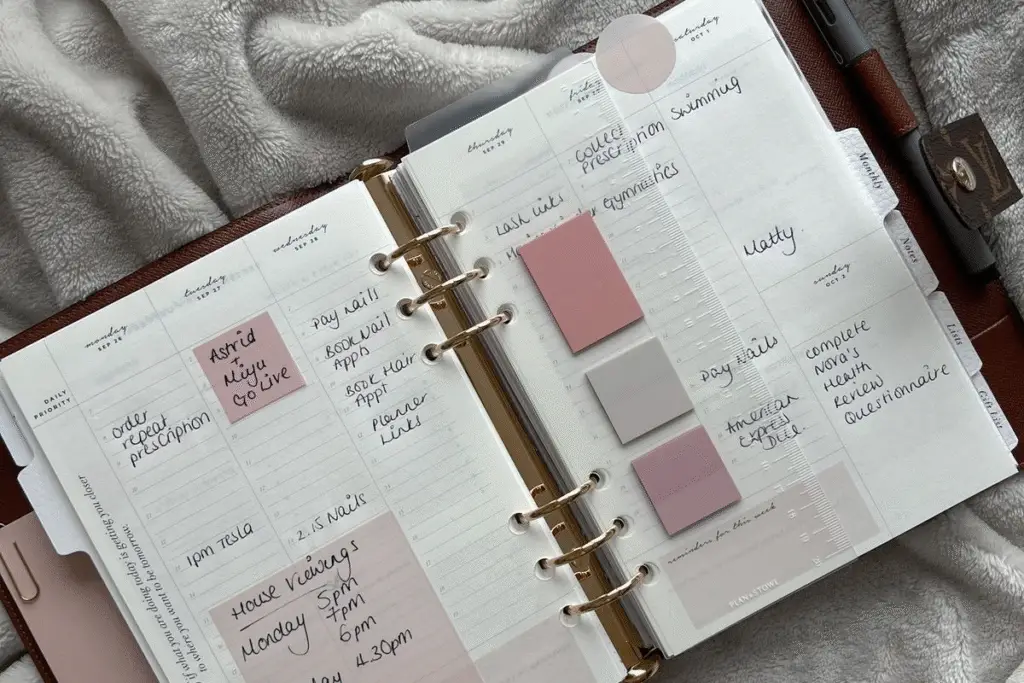 monday
SEP 26
tuesday
SEP 27
wednesday
SEP 28
DAILY
PRIORITY
order
repeat
prescription
1pm Tesla
Astrid
+
Miyu
Go Live
2.15 Nails
Pay Nails
BOOK Nail
Appts
BOOK Hair
Appt
Planner
Links
House Viewings
Monday 5pm
7pm
6pm
4.30pm
if what you are doing today is getting you closer
to where you want to be tomorrow.
thursday
SEP 29
Lash Links
friday
collect
prescription
Gymnastics
Pay Nails
American
Express
Due.
saturday
OCT 1
Swimming
Matty.
sunday
OCT 2
complete
Nova's
Health
Review
Questionnaire
reminders for this week
Monthly
Notes
Lists
Gift List
LV